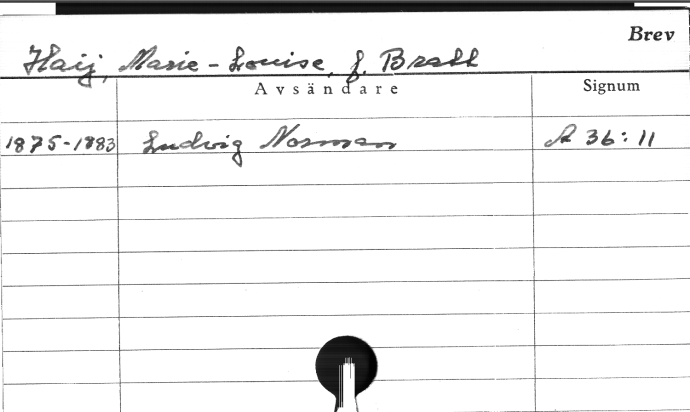 Brev
Haij, Marie-Louise, f. Bratt
Avsändare Signum
1875-1883 Ludvig Norman A 36:11